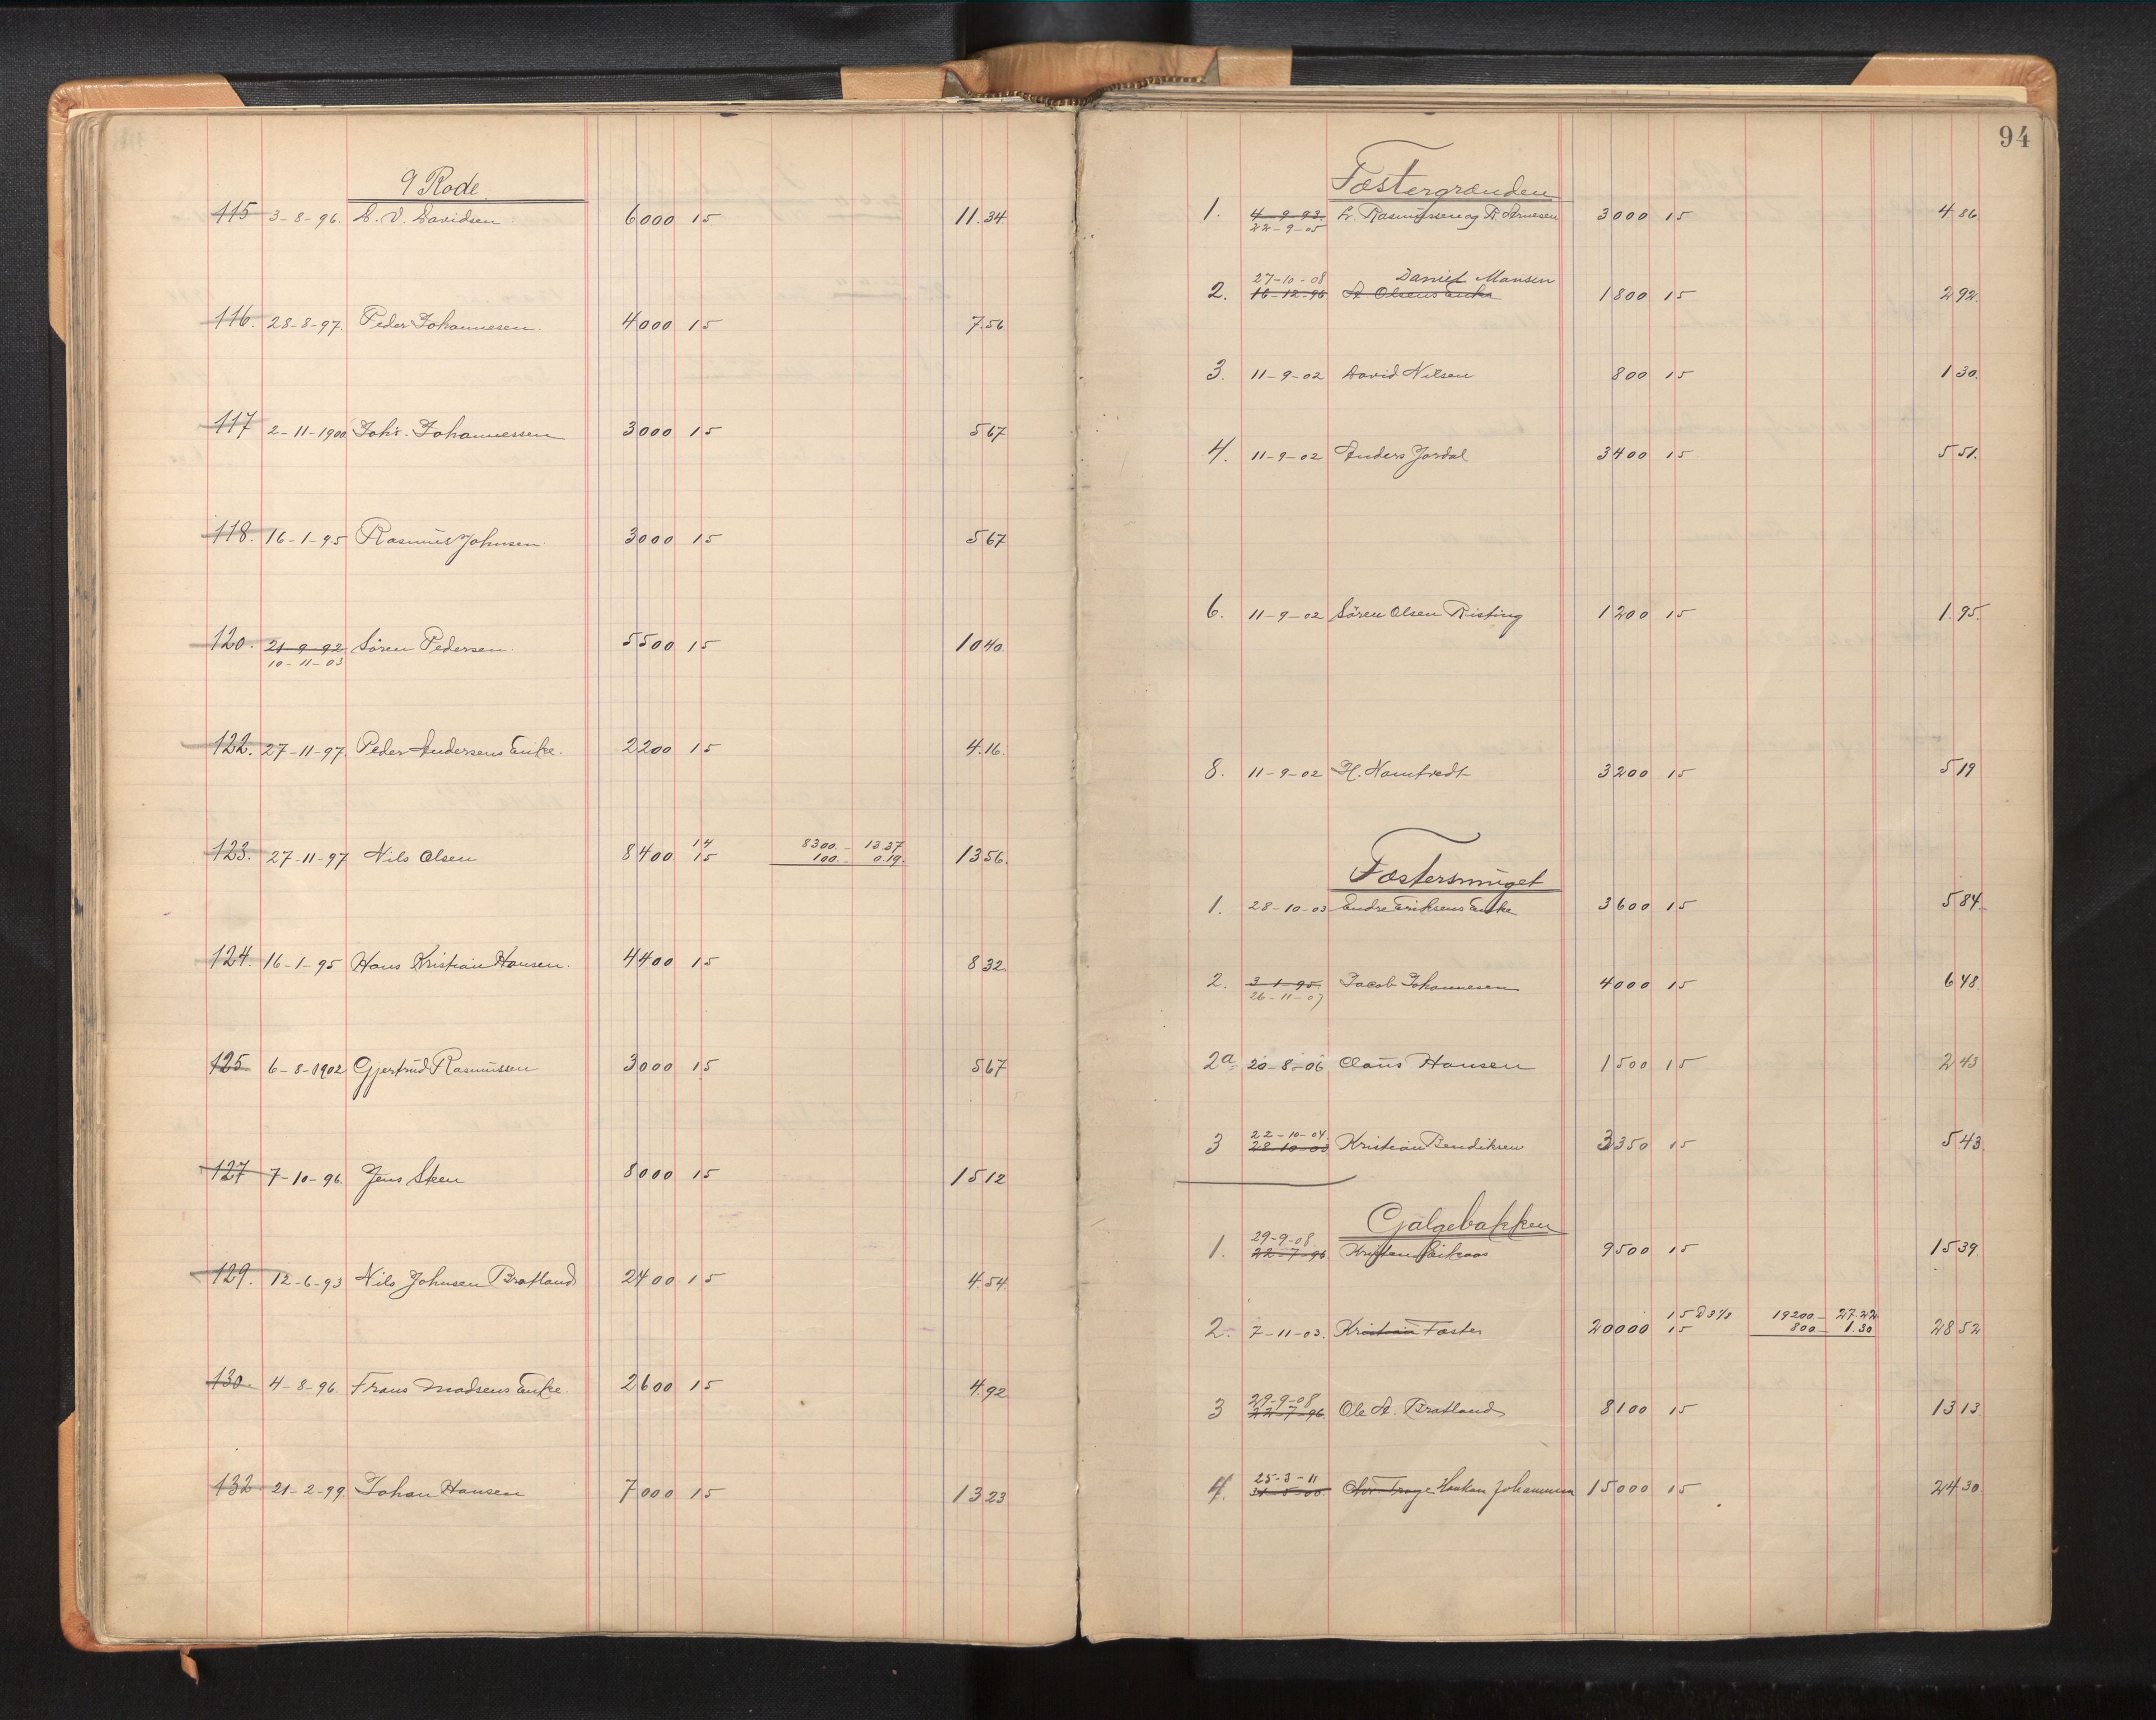 9 Rode
115 3-8-96. D. V. Davidsen. 6000 15 11.34.
116. 28-8-97. Peder Johannesen. 4000 15 7.56
117 2-11-1900 Johs. Johannessen 3000 15 567
118. 16-1-95 Rasmus Johnsen 3000 15 567
120. 21-9-92 Sören Pedersen. 5500 15 1040.
10-11-03
122. 27-11-97. Peder Andersens Enke. 2200 15 4.16.
14 8300.- 13.37
123. 27-11-97 Nils Olsen 8400 15 100.- 0.19. 1356.
124. 16-1-95 Hans Kristian Hansen. 4400 15 832.
125. 6-8-1902 Gjertrud Rasmussen 3000 15 567
127 7-10-96. Jens Steen 8000 15 1512
129. 12-6-93 Nils Johnsen Bratland 2400 15 4.54.
130. 4-8-96. Frans Madsens Enke. 2600 15 4.92
132 21-2-99. Johan Hansen 7000 15 1323
94
Fostergrænden
1. 4-9-93. L. Rasmussen og R Arnesen 3000 15 486
22-9-05
27-10-08 Daniel Monsen
2. 16-12-96 A Olsens Enke 1800 15 292.
3. 11-9-02 David Nilsen 800 15 130.
4. 11-9-02 Anders Jordal 3400 15 551.
6. 11-9-02 Sören Olsen Risting 1200 15 1.95.
8. 11-9-02 H. Namtvedt 3200 15 519
Fostersmuget
1. 28-10-03 Endre Eriksens Enke 3600 15 584.
2. 3-1-95. Jacob Johannesen 4000 15 648.
26-11-07
2a 20-8-06 Claus Hansen 1500 15 243
22-10-04.
3 28-10-03 Kristian Bendiksen 3350 15 543.
Galgebakken
29-9-08.
1. 22-7-96 9500 15 1539.
15 D 3 1/3 19200.- 27.22
2. 7-11-03. Kristian Foster 20000 15 800.- 1.30 2852
29-9-08
3 22-7-96 Ole A. Bratland 8100 15 1313.
25-3-11
4. 31-5-00. Haakon Johannesen 15000 15 2430.